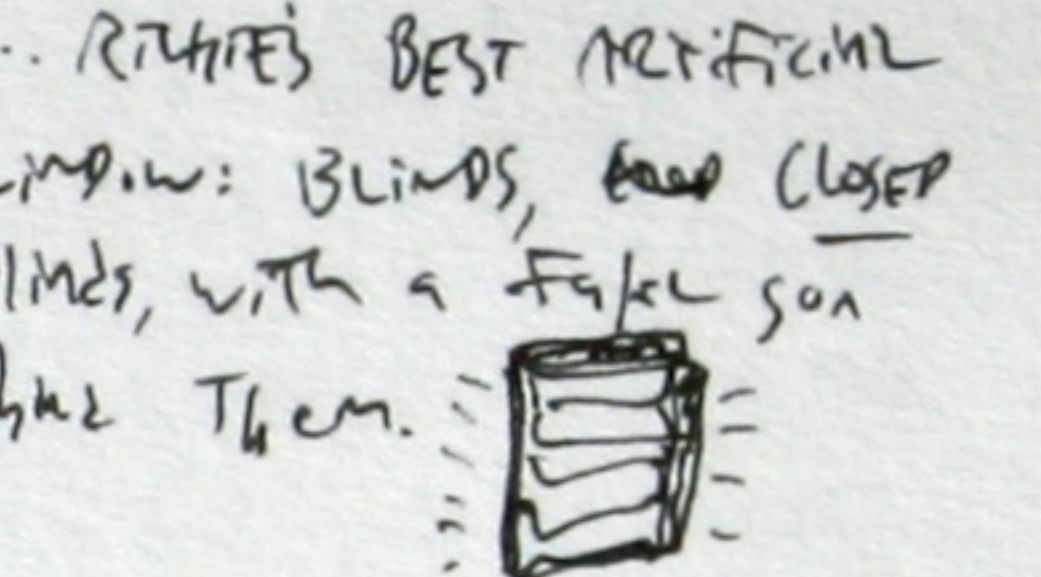 .. RITHIE'S BEST ARTIFICIAL
WINDOW: BLINDS, CLOSED
blinds, with a Fake sun
behind Them.